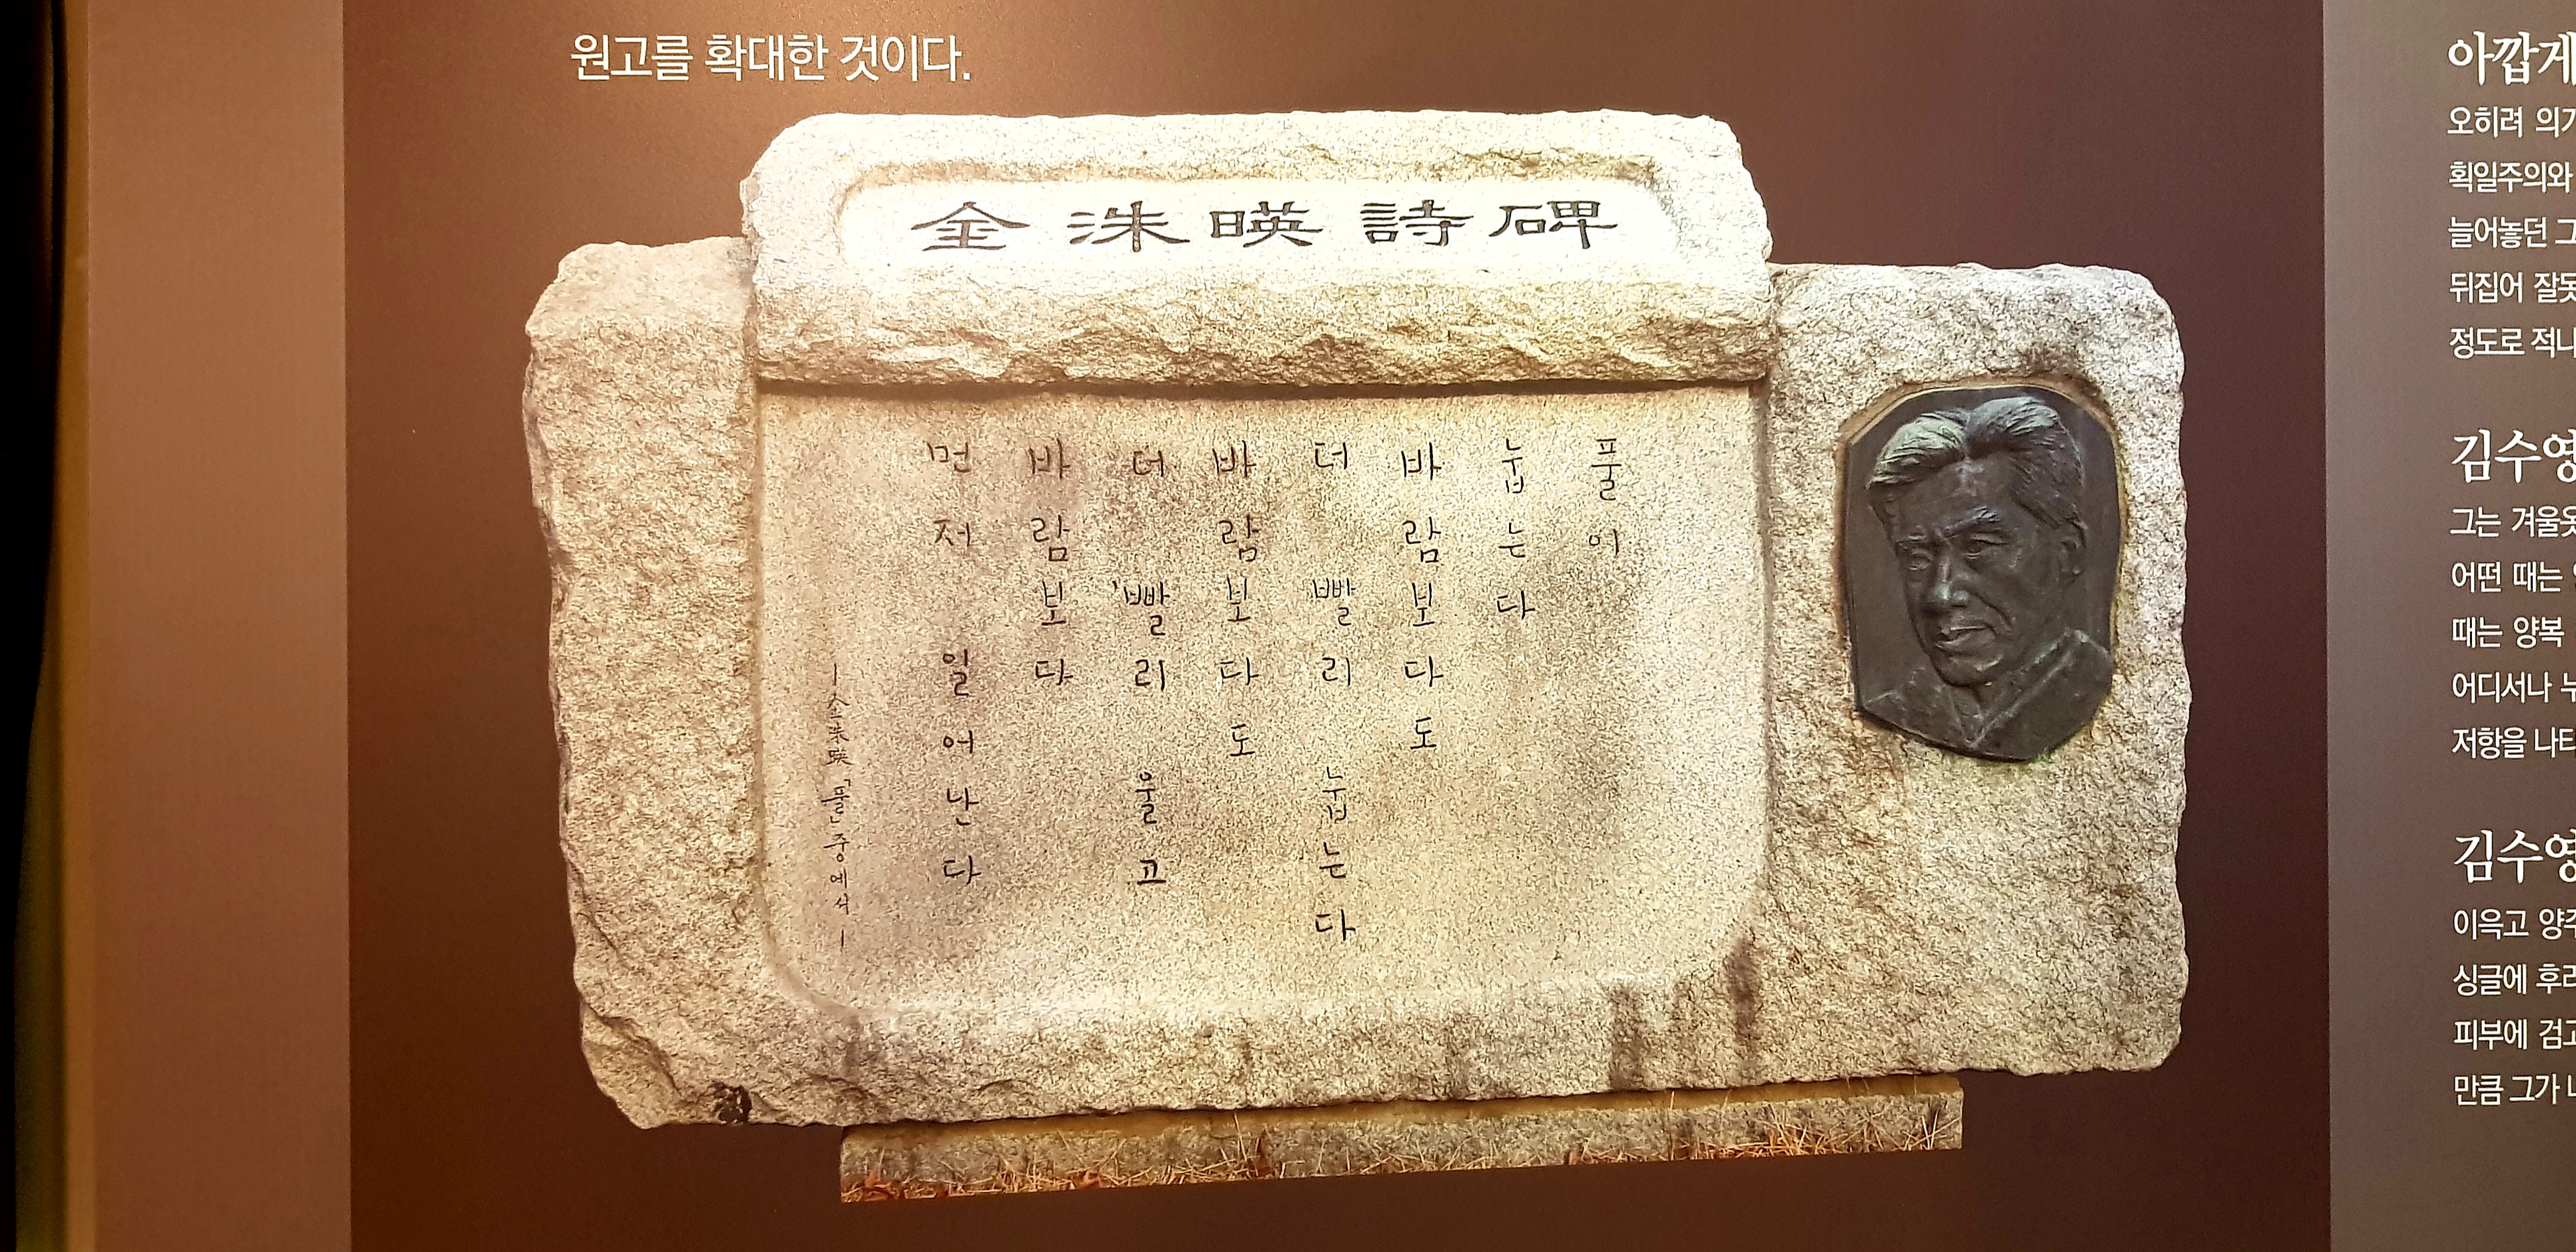 원고를 확대한 것이다.
金洙暎詩碑
풀이
눕는다
바람보다도
더 빨리 눕는다
바람보다도
더 빨리 울고
바람보다
먼저 일어난다
―金洙暎「풀」중에서―
아깝게
오히려
획일주의와
늘어놓던 그
뒤집어
정도로
김수영
그는
어떤 때는
때는 양복
어디서나
저항을
김수영
이윽고
싱글에
피부에
만큼 그가